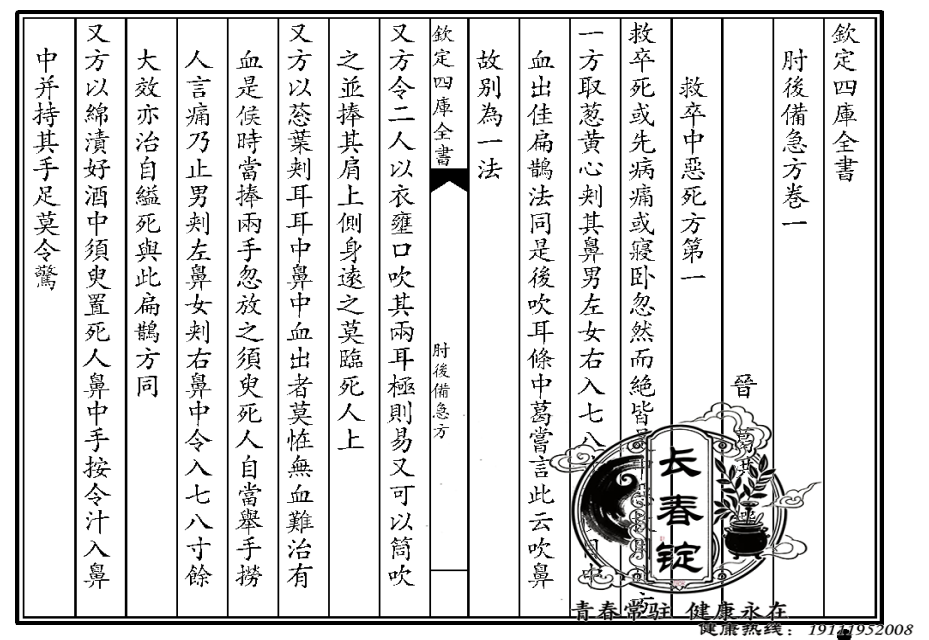 欽定四庫全書
肘後備急方卷一
晉 葛
救卒中惡死方第一
救卒死或先病痛或寢卧忽然而絶皆
一方取葱黄心刾其鼻男左女右入七八
血出佳扁鵲法同是後吹耳條中葛嘗言此云吹鼻
故别為一法
欽定四庫全書
肘後備急方
又方令二人以衣壅口吹其兩耳極則易又可以筒吹
之並捧其肩上側身逺之莫臨死人上
又方以葱葉刾耳耳中鼻中血出者莫恠無血難治有
血是侯時當捧兩手忽放之須臾死人自當舉手撈
人言痛乃止男刾左鼻女刾右鼻中令入七八寸餘
大效亦治自縊死與此扁鵲方同
又方以綿漬好酒中須臾置死人鼻中手按令汁入鼻
中并持其手足莫令驚
长春锭
青春常驻 健康永在
健康热线：19111952008